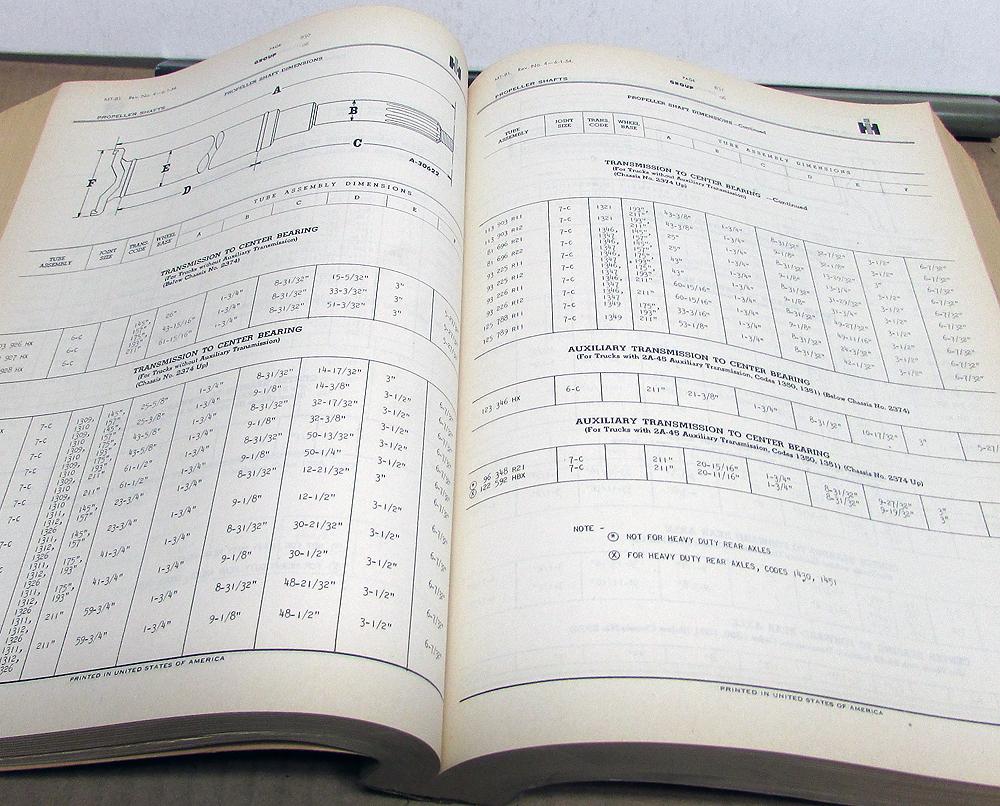 PAGE 850
GROUP 06
MT-81. Rev. No. 4-6-1-54.
PROPELLER SHAFTS
PROPELLER SHAFT DIMENSIONS
A
B
C
D
E
F
A-30622
TUBE ASSEMBLY DIMENSIONS
TUBE ASSEMBLY JOINT SIZE TRANS. CODE WHEEL BASE A B C D E F
TRANSMISSION TO CENTER BEARING
(For Trucks without Auxiliary Transmission)
(Below Chassis No. 2374)
926 HX 6-C 145" 26" 1-3/4" 8-31/32" 15-5/32" 3"
927 HX 6-C 43-15/16" 1-3/4" 8-31/32" 33-3/32" 3"
928 HX 6-C 211" 61-15/16" 1-3/4" 8-31/32" 51-3/32" 3"
TRANSMISSION TO CENTER BEARING
(For Trucks without Auxiliary Transmission)
(Chassis No. 2374 Up)
7-C 1309, 1310 145", 157" 25-5/8" 1-3/4" 8-31/32" 14-17/32" 3"
7-C 1309, 1310 145", 157" 25-3/8" 1-3/4" 9-1/8" 14-3/8" 3-1/2" 6-7/32"
7-C 1309, 1310 175", 193" 43-5/8" 1-3/4" 8-31/32" 32-17/32" 3-1/2"
7-C 1309, 1310 175", 193" 43-5/8" 1-3/4" 9-1/8" 32-3/8" 3-1/2"
7-C 1309, 1310 211" 61-1/2" 1-3/4" 8-31/32" 50-13/32" 3-1/2"
7-C 1309, 1310 211" 61-1/2" 1-3/4" 9-1/8" 50-1/4" 3-1/2"
7-C 1311, 1312, 1326 145", 157" 23-3/4" 1-3/4" 8-31/32" 12-21/32" 3"
7-C 1311, 1312, 1326 145", 157" 23-3/4" 1-3/4" 9-1/8" 12-1/2" 3-1/2"
1311, 1312, 1326 175", 193" 41-3/4" 1-3/4" 8-31/32" 30-21/32" 3-1/2" 6-7/32"
1311, 1312, 1326 175", 193" 41-3/4" 1-3/4" 9-1/8" 30-1/2" 3-1/2" 6-7/32"
1311, 1312, 1326 211" 59-3/4" 1-3/4" 8-31/32" 48-21/32" 3-1/2" 6-7/32"
1311, 1312, 1326 211" 59-3/4" 1-3/4" 9-1/8" 48-1/2" 3-1/2" 6-7/32"
PRINTED IN UNITED STATES OF AMERICA
PAGE 851
GROUP 06
MT-81. Rev. No. 4-6-1-54.
PROPELLER SHAFTS
PROPELLER SHAFT DIMENSIONS—Continued
TUBE ASSEMBLY DIMENSIONS
TUBE ASSEMBLY JOINT SIZE TRANS. CODE WHEEL BASE A B C D E F
TRANSMISSION TO CENTER BEARING—Continued
(For Trucks without Auxiliary Transmission)
(Chassis No. 2374 Up)
113 903 R11 7-C 1321 193", 211" 43-3/8" 1-3/4" 8-31/32" 3-1/2" 6-7/32"
113 903 R12 7-C 1321 193", 211" 43-3/8" 1-3/4" 9-1/8" 3-1/2" 6-7/32"
81 696 R21 7-C 1346, 1347 25" 1-3/4" 8-31/32" 3" 6-7/32"
81 696 R22 7-C 1346, 1347 25" 1-3/4" 9-1/8" 3-1/2" 6-7/32"
93 225 R11 7-C 1346, 1347 43" 1-3/4" 8-31/32" 3-1/2" 6-7/32"
93 225 R12 7-C 1346, 1347 43" 1-3/4" 9-1/8" 3-1/2" 6-7/32"
93 226 R11 7-C 1346, 1347 211" 60-15/16" 1-3/4" 8-31/32" 3-1/2" 6-7/32"
93 226 R12 7-C 1346, 1347 211" 60-15/16" 1-3/4" 9-1/8" 3-1/2" 6-7/32"
125 788 R11 7-C 1349 175", 193" 33-3/16" 1-3/4" 8-31/32" 3-1/2" 6-7/32"
125 789 R11 7-C 1349 211" 53-1/8" 1-3/4" 8-31/32" 3-1/2" 6-7/32"
AUXILIARY TRANSMISSION TO CENTER BEARING
(For Trucks with 2A-45 Auxiliary Transmission, Codes 1350, 1351) (Below Chassis No. 2374)
123 346 HX 6-C 211" 21-3/8" 1-3/4" 8-31/32" 10-17/32" 3"
AUXILIARY TRANSMISSION TO CENTER BEARING
(For Trucks with 2A-45 Auxiliary Transmission, Codes 1350, 1351) (Chassis No. 2374 Up)
96 348 R21 7-C 211" 20-15/16" 1-3/4" 8-31/32" 9-27/32" 3"
122 592 HBX 7-C 211" 20-11/16" 1-3/4" 8-31/32" 9-19/32" 3"
NOTE -
NOT FOR HEAVY DUTY REAR AXLES
FOR HEAVY DUTY REAR AXLES, CODES 1430, 1451
PRINTED IN UNITED STATES OF AMERICA